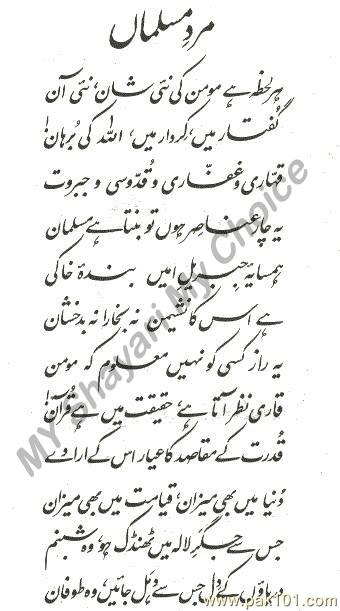 مردِ مسلماں
ہر لحظہ ہے مومن کی نئی شان، نئی آن
گفتار میں، کردار میں، اللہ کی بُرہان!
قہّاری و غفّاری و قُدّوسی و جبروت
یہ چار عناصر ہوں تو بنتا ہے مسلمان
ہمسایۂ جبریلِ امیں بندۂ خاکی
ہے اس کا نشیمن نہ بخارا نہ بدخشان
یہ راز کسی کو نہیں معلوم کہ مومن
قاری نظر آتا ہے، حقیقت میں ہے قُرآن!
قُدرت کے مقاصد کا عیار اس کے ارادے
دُنیا میں بھی میزان، قیامت میں بھی میزان
جس سے جگرِ لالہ میں ٹھنڈک ہو، وہ شبنم
دریاؤں کے دل جس سے دہل جائیں، وہ طوفان
My Shayari My Choice
www.pak101.com